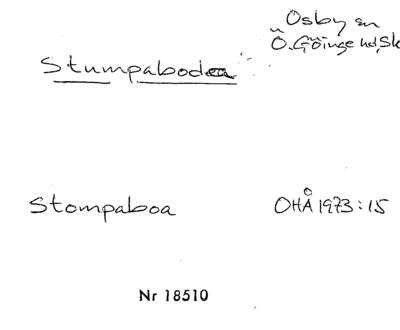 Osby sn
Ö. Göinge hd, Sk
Stumpabodea
Stompaboa
OHÅ 1973:15
Nr 18510